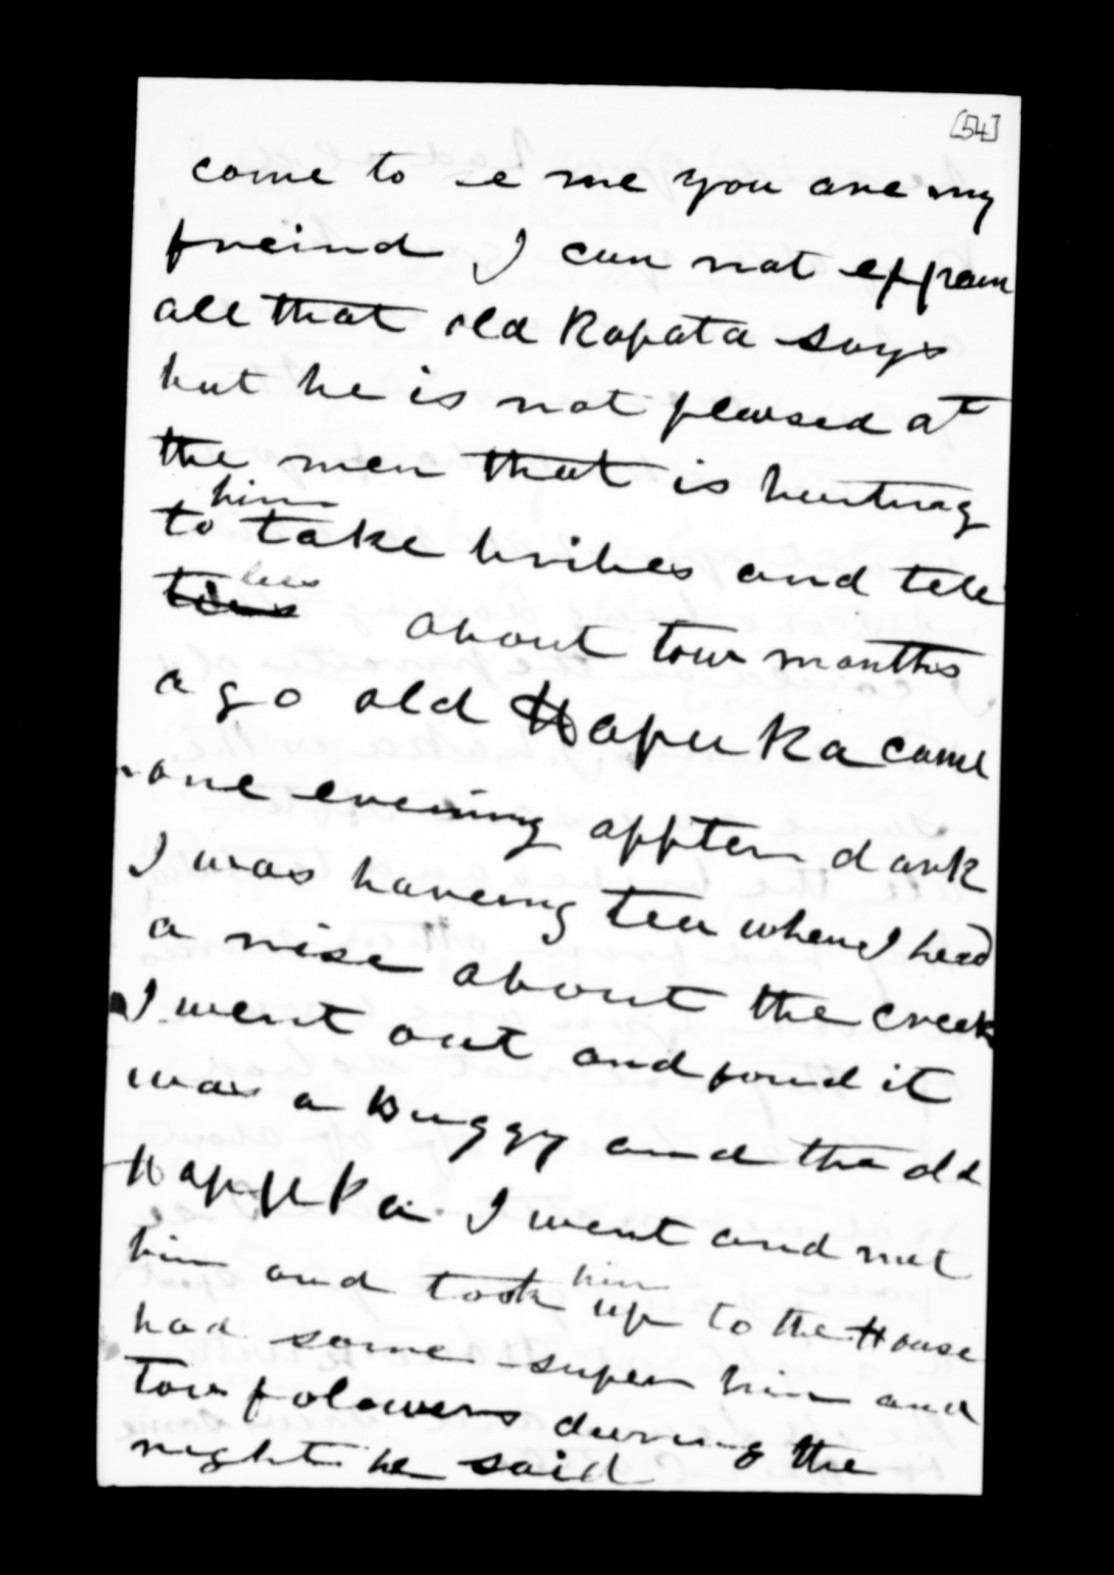 [54]
come to se me you are my
freind I can not exspain
all that old Ropata says
but he is not pleased at
the men that is hunting
him
to take bribes and tell
lies
about tow months
ago old Hapuka came
one evening affter dark
I was haveing tea when I herd
a nise about the creek
I went out and found it
was a Buggy and the old
Hapuka I went and met
him and took him up to the House
had some super him and
tow folowers during the
night he said